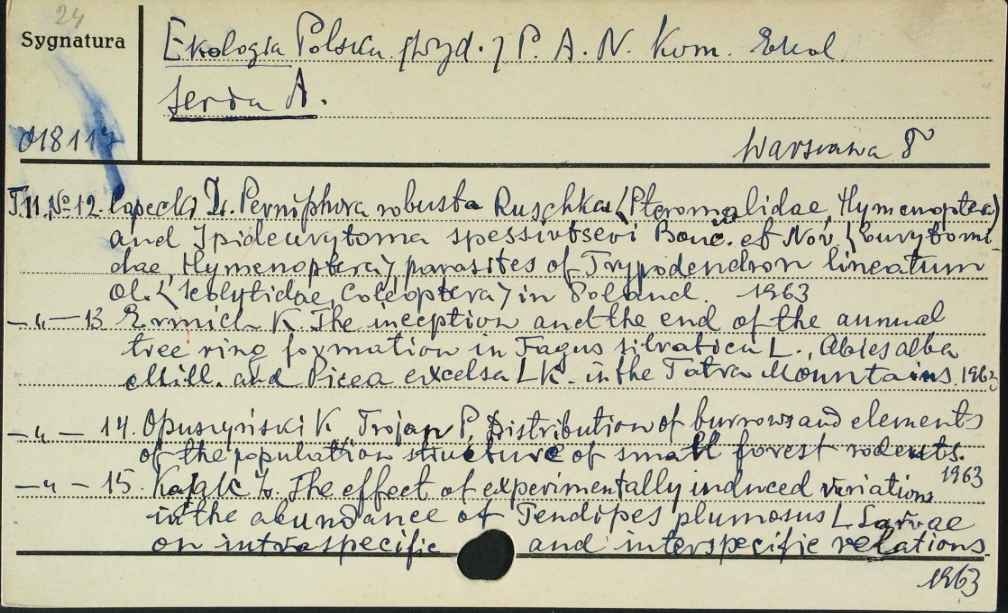 24
Sygnatura
Ekologia Polska /Wyd./ P. A. N. Kom. Ekol.
Seria A.
018117
Warszawa 8°
T.11. № 12. Capecki Z. Perniphora robusta Ruschka (Pteromalidae, Hymenoptera)
and Ipideurytoma spessivtsevi Bouč. et Nov. (Eurytomi
dae, Hymenoptera) parasites of Trypodendron lineatum
Ol. (Scolytidae, Coleoptera) in Poland. 1963
— „ — 13 Ermich K. The inception and the end of the annual
tree ring formation in Fagus silvatica L., Abies alba
Mill. and Picea excelsa Lk. in the Tatra Mountains. 1963
— „ — 14. Opuszyński K. Trojan P. Distribution of burrows and elements
of the population structure of small forest rodents.
1963
— „ — 15. Kajak Z. The effect of experimentally induced variations
in the abundance of Tendipes plumosus L. Larvae
on intraspecific and interspecific relations.
1963